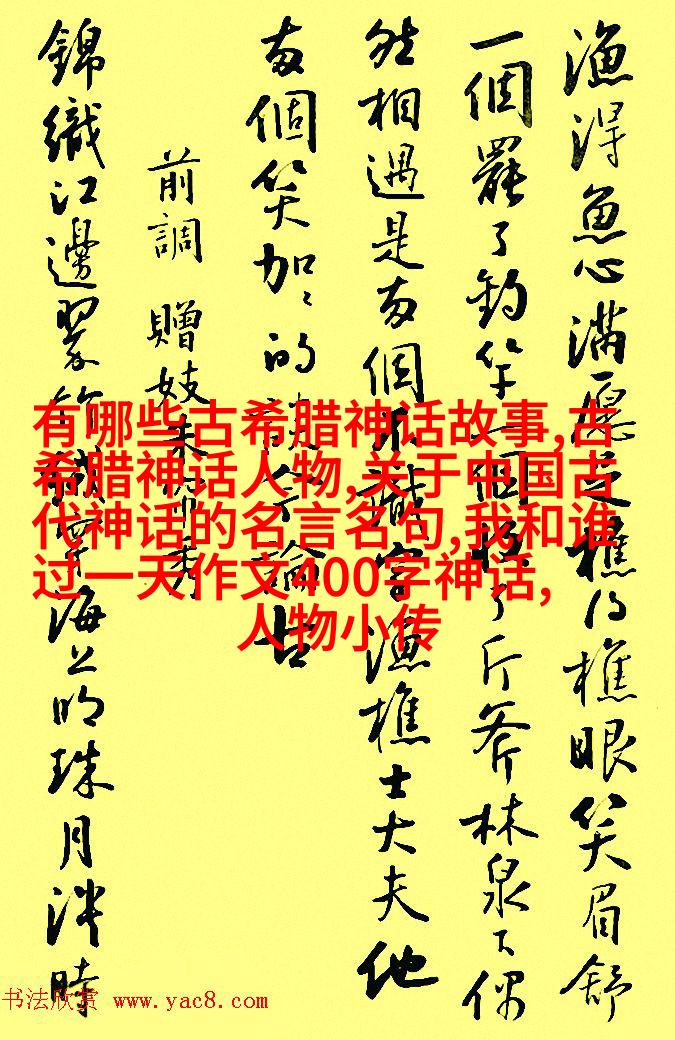 漁得魚心滿愿足樵得樵眼笑眉舒
一個罷了釣竿一個了斤斧林泉下偶
然相遇是兩個不識字漁樵士大夫他
兩個笑加〻的談今論古
前調 贈妓朱簾秀
錦織江邊翠竹絨穿海上明珠月淡時
有哪些古希腊神话故事,古
希腊神话人物,关于中国古
代神话的名言名句,我和谁
过一天作文400字神话,
人物小传
书法欣赏 www.yac8.com